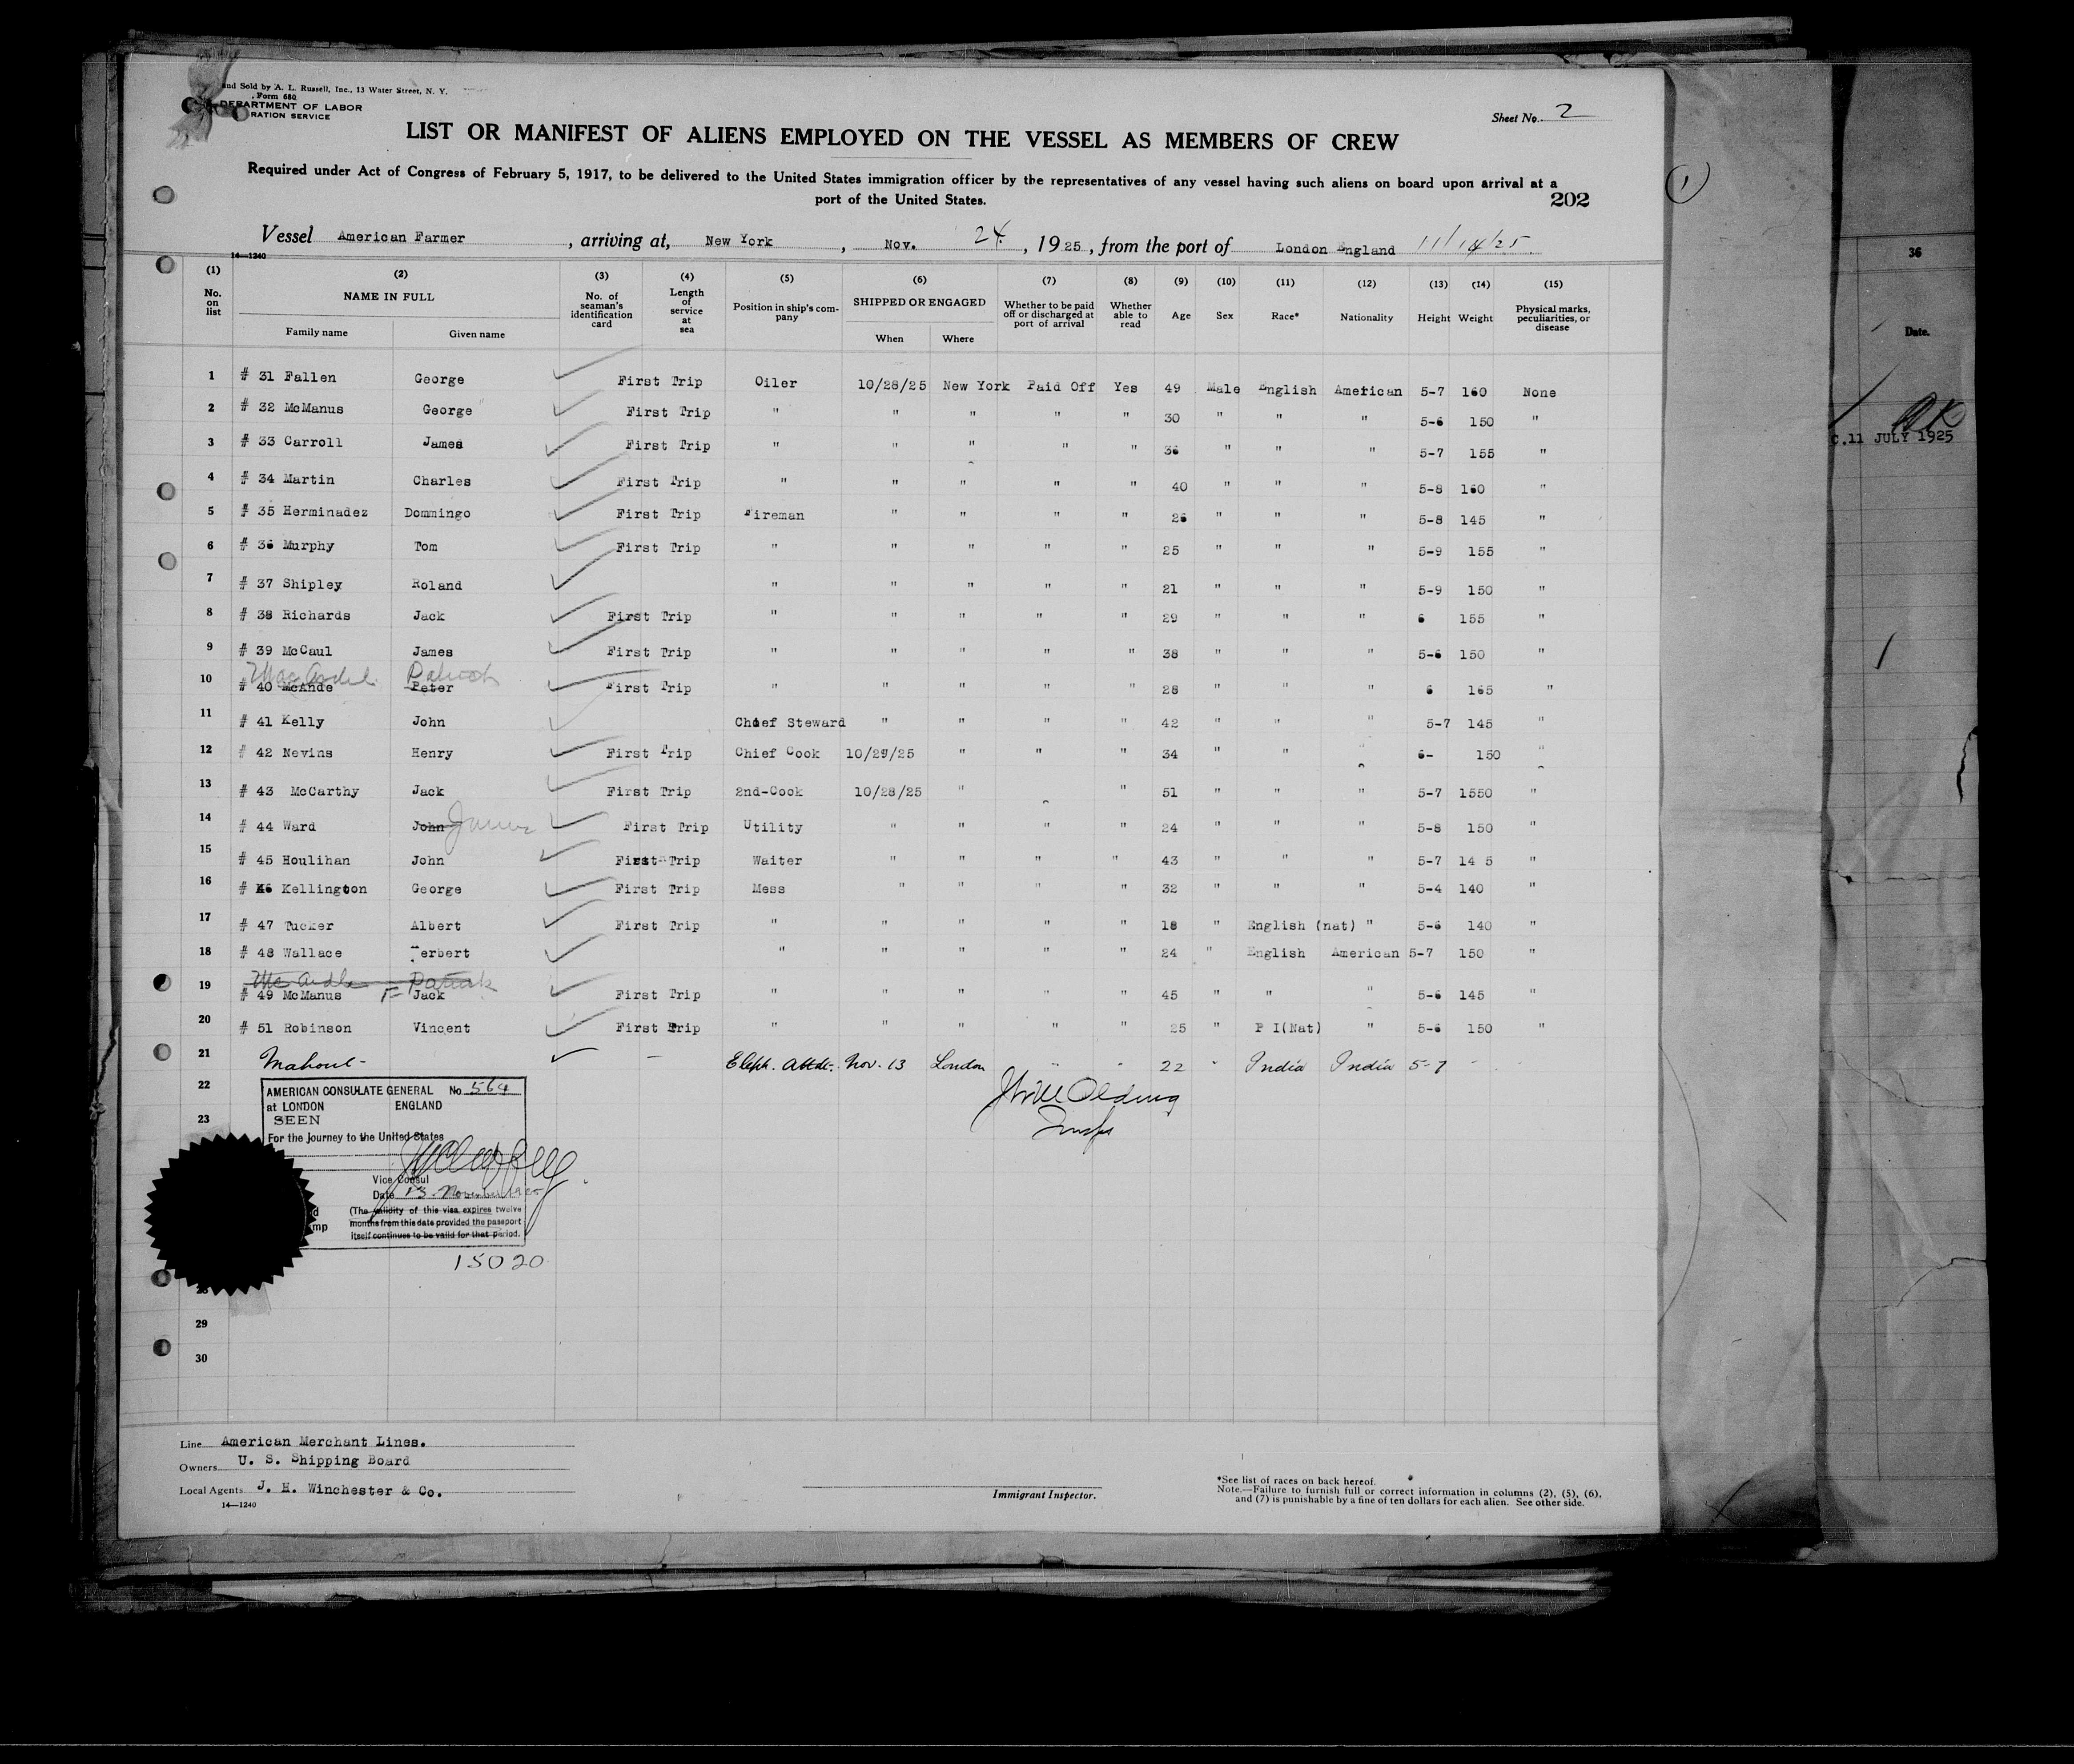 and Sold by A. L. Russell, Inc., 13 Water Street, N. Y.
Form 680
DEPARTMENT OF LABOR
RATION SERVICE
Sheet No. 2
LIST OR MANIFEST OF ALIENS EMPLOYED ON THE VESSEL AS MEMBERS OF CREW
Required under Act of Congress of February 5, 1917, to be delivered to the United States immigration officer by the representatives of any vessel having such aliens on board upon arrival at a
port of the United States.
202
Vessel American Farmer, arriving at, New York, Nov. 24, 1925, from the port of London England 11/14/25
14—1240
(1) (2) (3) (4) (5) (6) (7) (8) (9) (10) (11) (12) (13) (14) (15)
No. on list NAME IN FULL No. of seaman's identification card Length of service at sea Position in ship's company SHIPPED OR ENGAGED Whether to be paid off or discharged at port of arrival Whether able to read Age Sex Race* Nationality Height Weight Physical marks, peculiarities, or disease
Family name Given name When Where
1 # 31 Fallen George First Trip Oiler 10/28/25 New York Paid Off Yes 49 Male English American 5-7 160 None
2 # 32 McManus George First Trip " " " " " 30 " " " 5-6 150 "
3 # 33 Carroll James First Trip " " " " " 36 " " " 5-7 155 "
4 # 34 Martin Charles First Trip " " " " " 40 " " " 5-8 160 "
5 # 35 Herminadez Dommingo First Trip Fireman " " " " 26 " " " 5-8 145 "
6 # 36 Murphy Tom First Trip " " " " " 25 " " " 5-9 155 "
7 # 37 Shipley Roland " " " " " 21 " " " 5-9 150 "
8 # 38 Richards Jack First Trip " " " " " 29 " " " 6 155 "
9 # 39 McCaul James First Trip " " " " " 38 " " " 5-6 150 "
MacArdel Patrick
10 # 40 McAnde Peter First Trip " " " " " 28 " " " 6 165 "
11 # 41 Kelly John Chief Steward " " " " 42 " " " 5-7 145 "
12 # 42 Nevins Henry First Trip Chief Cook 10/29/25 " " " 34 " " " 6- 150 "
13 # 43 McCarthy Jack First Trip 2nd-Cook 10/28/25 " " 51 " " " 5-7 1550 "
14 # 44 Ward John James First Trip Utility " " " " 24 " " " 5-8 150 "
15 # 45 Houlihan John First Trip Waiter " " " " 43 " " " 5-7 14 5 "
16 # 46 Kellington George First Trip Mess " " " " 32 " " " 5-4 140 "
17 # 47 Tucker Albert First Trip " " " " " 18 " English (nat) " 5-6 140 "
18 # 48 Wallace Terbert " " " " " 24 " English American 5-7 150 "
Mc Ardle Patrick
19 # 49 McManus F Jack First Trip " " " " " 45 " " " 5-6 145 "
20 # 51 Robinson Vincent First Trip " " " " " 25 " P I(Nat) " 5-6 150 "
21 Mahout - — Eleph. Attdt. Nov. 13 London " " 22 " India India 5-7
22
23
AMERICAN CONSULATE GENERAL No. 564
at LONDON ENGLAND
SEEN
For the journey to the United States
Vice Consul
Date 13 November 1925
(The validity of this visa expires twelve
months from this date provided the passport
itself continues to be valid for that period.
15020
28
29
30
Line American Merchant Lines.
Owners U. S. Shipping Board
Local Agents J. H. Winchester & Co.
14—1240
Immigrant Inspector.
*See list of races on back hereof.
Note.—Failure to furnish full or correct information in columns (2), (5), (6),
and (7) is punishable by a fine of ten dollars for each alien. See other side.
1
36
Date.
C.11 JULY 1925